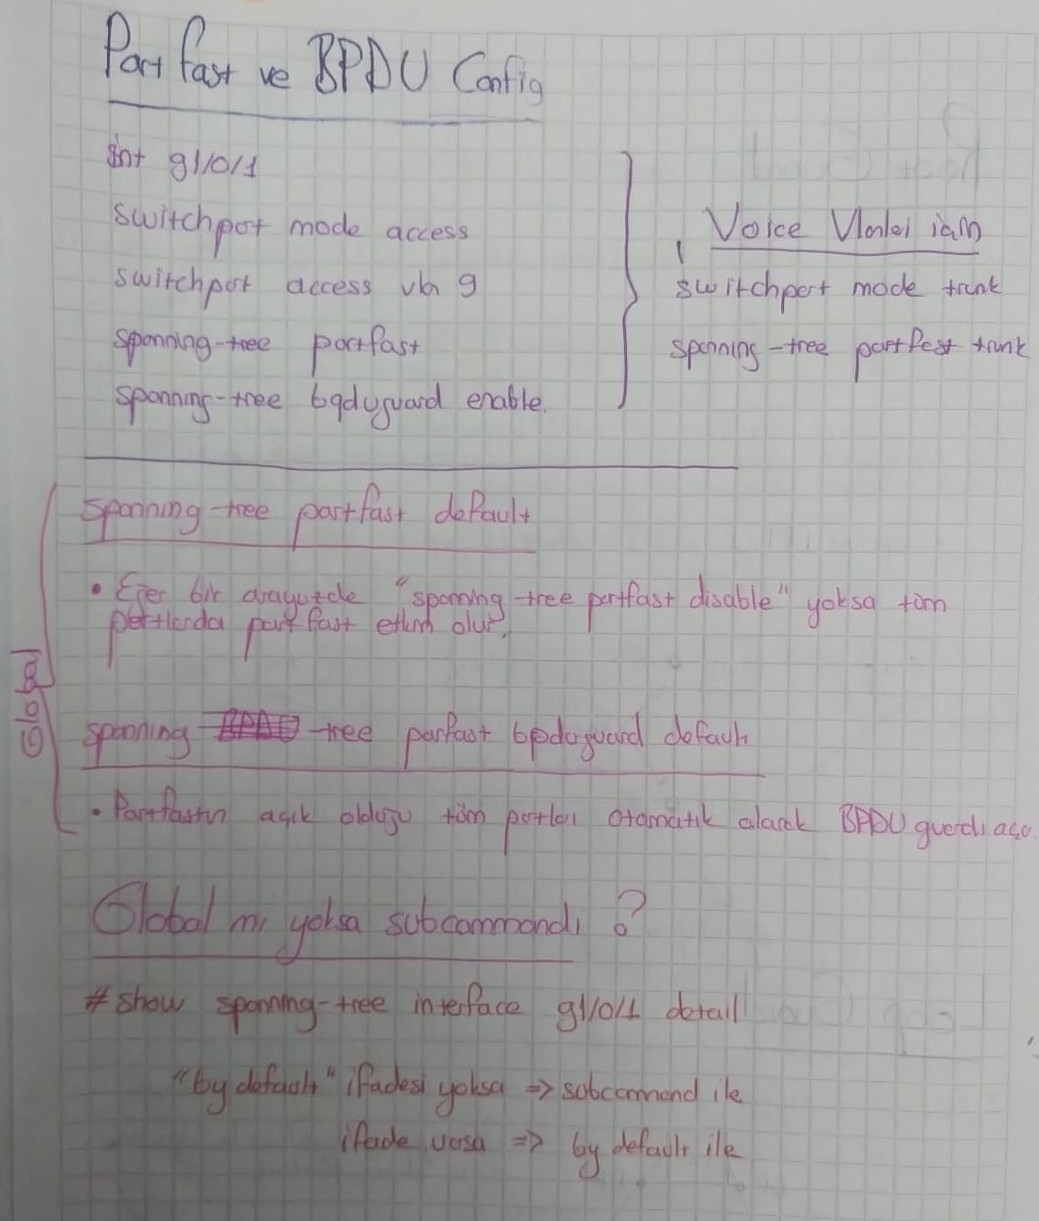 Portfast ve BPDU Config
int g1/0/1
switchport mode access
switchport access vlan 9
spanning-tree portfast
spanning-tree bpduguard enable.
Voice Vlanlei için
switchport mode trunk
spanning-tree portfast trunk
Global
spanning-tree portfast default
• Eğer bir arayüzde "spanning-tree portfast disable" yoksa tüm
portlarda portfast etkin olur.
spanning-tree porfast bpduguard default
• Portfastın açık olduğu tüm portları otomatik olarak BPDU guardı açar.
Global mı yoksa subcommandı ?
# show spanning-tree interface g1/0/1 detail
"by default" ifadesi yoksa => subcommand ile
ifade varsa => by default ile